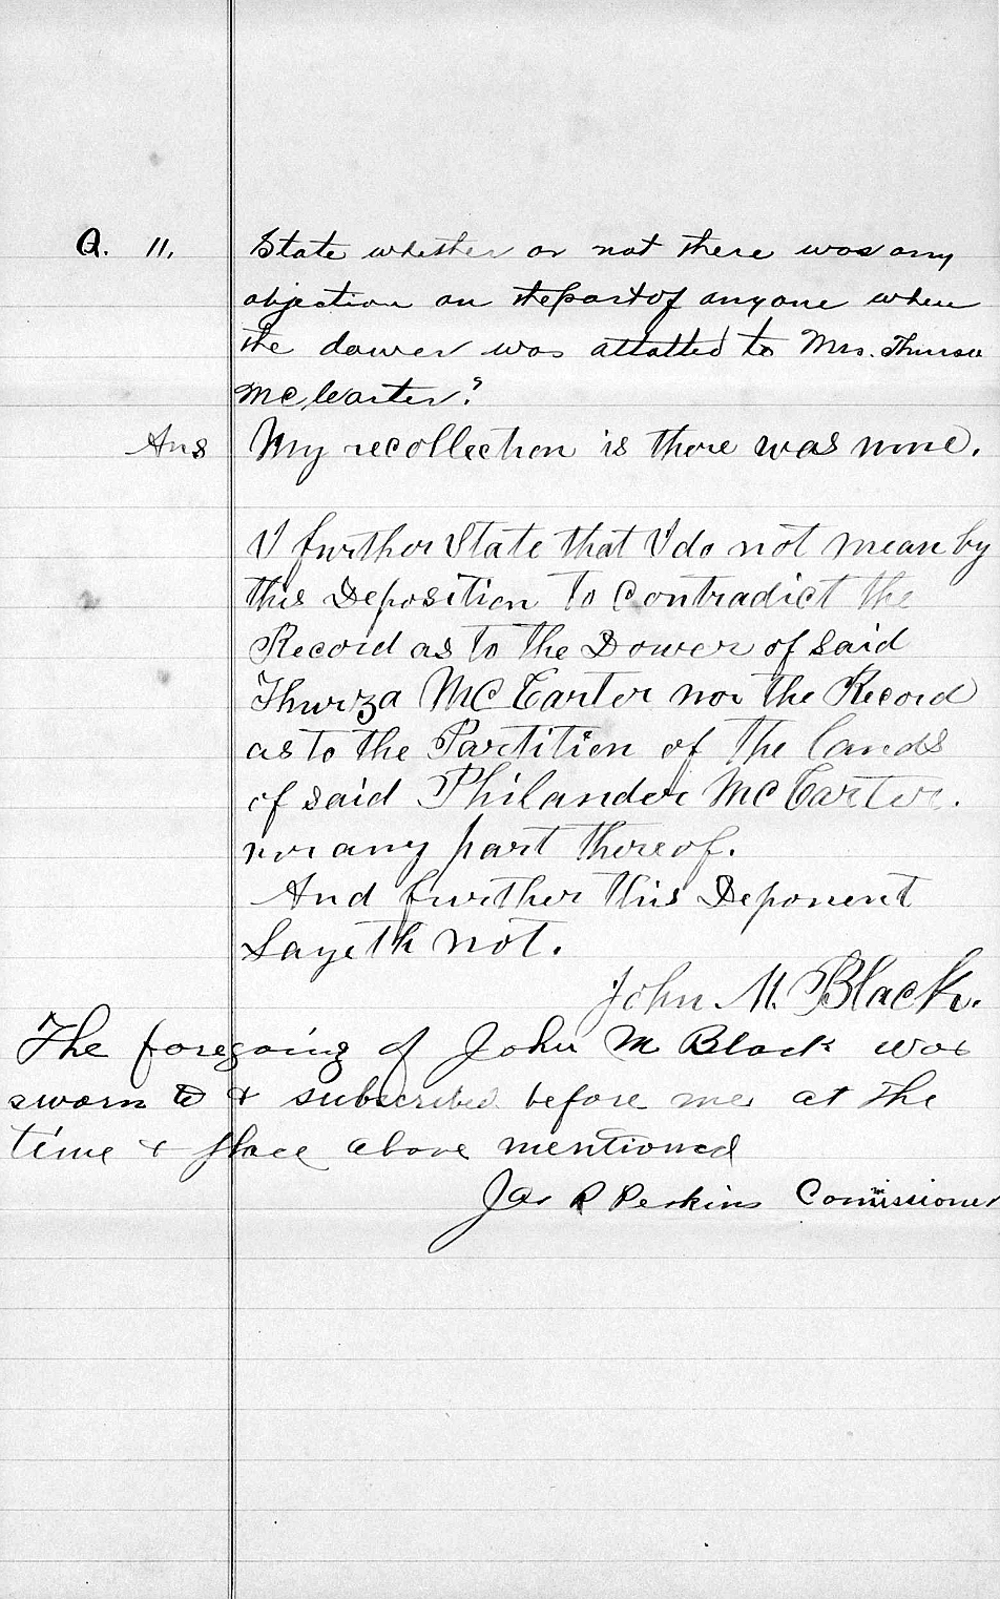 Q. 11. State whether or not there was any
objection on the part of anyone when
the dower was attatted to Mrs. Thursa
McCarter?
Ans My recollection is there was none.
I further State that I do not mean by
this Deposition To Contradict the
Record as To the Dower of said
Thurza McCarter nor the Record
as To the Partition of The lands
of said Philander McCarter.
nor any part thereof.
And further this Deponent
Sayeth not.
John M. Black.
The foregoing of John M Black was
sworn to & subscribed before me at the
time & place above mentioned
Jas R Perkins Commissioner